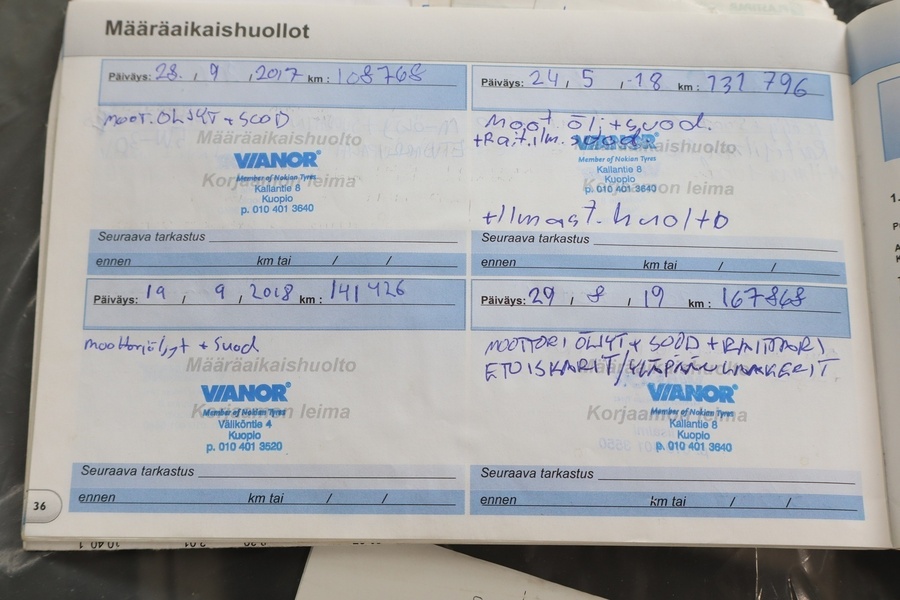 Määräaikaishuollot
Päiväys: 28. , 9 , 2017 km : 108768
MOOT. ÖLJYT + SUOD
Määräaikaishuolto
VIANOR
Member of Nokian Tyres
Korjaamon leima
Kallantie 8
Kuopio
p. 010 401 3640
Seuraava tarkastus
ennen km tai / /
Päiväys: 24, 5 , -18 km : 131 796
Moot. ölj + suod.
+Rait.ilm. suod
Määräaikaishuolto
VIANOR
Member of Nokian Tyres
Kallantie 8
Kuopio
Korjaamon leima
p. 010 401 3640
+Ilmast. huolto
Seuraava tarkastus
ennen km tai / /
Päiväys: 19 , 9 , 2018 km : 141 426
moottoriöljyt + suod
Määräaikaishuolto
VIANOR
Korjaamon leima
Member of Nokian Tyres
Väliköntie 4
Kuopio
p. 010 401 3520
Seuraava tarkastus
ennen km tai / /
Päiväys: 29 , 8 , 19 km : 167868
MOOTTORI ÖLJYT + SUOD + RAITTARI
ETUISKARIT/YLÄPÄÄN LAAKERIT
Määräaikaishuolto
VIANOR
Member of Nokian Tyres
Korjaamon leima
Kallantie 8
Kuopio
p. 010 401 3640
Seuraava tarkastus
ennen km tai / /
36